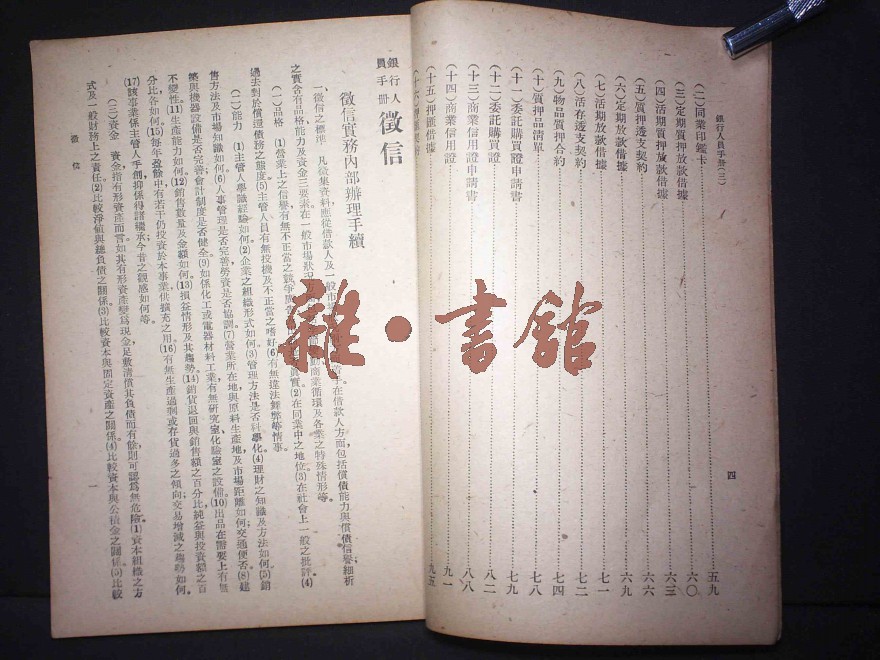 銀行人員手冊(三)
四
(二)同業印鑑卡……五九
(三)定期質押放款借據……六〇
(四)活期質押放款借據……六三
(五)質押透支契約……六六
(六)定期放款借據……六九
(七)活期放款借據……七一
(八)活存透支契約……七二
(九)物品質押合約……七四
(十)質押品清單……七八
(十一)委託購買證申請書……七九
(十二)委託購買證……八二
(十三)商業信用證申請書……八八
(十四)商業信用證……九一
(十五)押匯借據……九五
銀行人員手冊 徵信
徵信實務內部辦理手續
一、徵信之標準 凡徵集資料應從借款人及一般市
在借款人方面,包括償債能力與償債信譽細析
之實含有品格能力及資金三要素在一般市場狀況
商業循環及各業之特殊情形等。
(一)品格 (1)營業上之信譽有無不正當之競爭
(2)在同業中之地位。(3)在社會上一般之批評(4)
過去對於償還債務之態度(5)主管人員有無投機及不正當之嗜好(6)有無違法舞弊等情事。
(二)能力 (1)主管人學識經驗如何。(2)企業之組織形式如何。(3)管理方法是否科學化。(4)理財之知識及方法如何。(5)銷
售方法及市場知識如何。(6)人事管理是否完善勞資是否協調。(7)營業所在地與原料生產地及市場距離如何;交通便否(8)建
築與機器設備是否完善會計制度是否健全。(9)如係化工或電器材料工業有無研究室化驗室之設備。(10)出品在需要上有無
不變性。(11)生產能力如何。(12)銷售數量及金額如何。(13)損益情形及其趨勢。(14)銷貨退回與銷售額之百分比,純益與投資額之百
分比各如何。(15)每年盈餘中有若干仍投資於本事業供擴充之用。(16)有無生產過剩或存貨過多之傾向交易增減之趨勢如何。
(17)該事業係主管人手創抑係得諸繼承今昔之觀感如何等。
(三)資金 資金指有形資產而言如其有形資產變爲現金足敷清償其負債而有餘則可認爲無危險。(1)資本組織之方
式及一般財務上之責任。(2)比較淨值與總負債之關係。(3)比較資本與固定資產之關係。(4)比較資本與公積金之關係。(5)比較
徵信
一
雜·書館